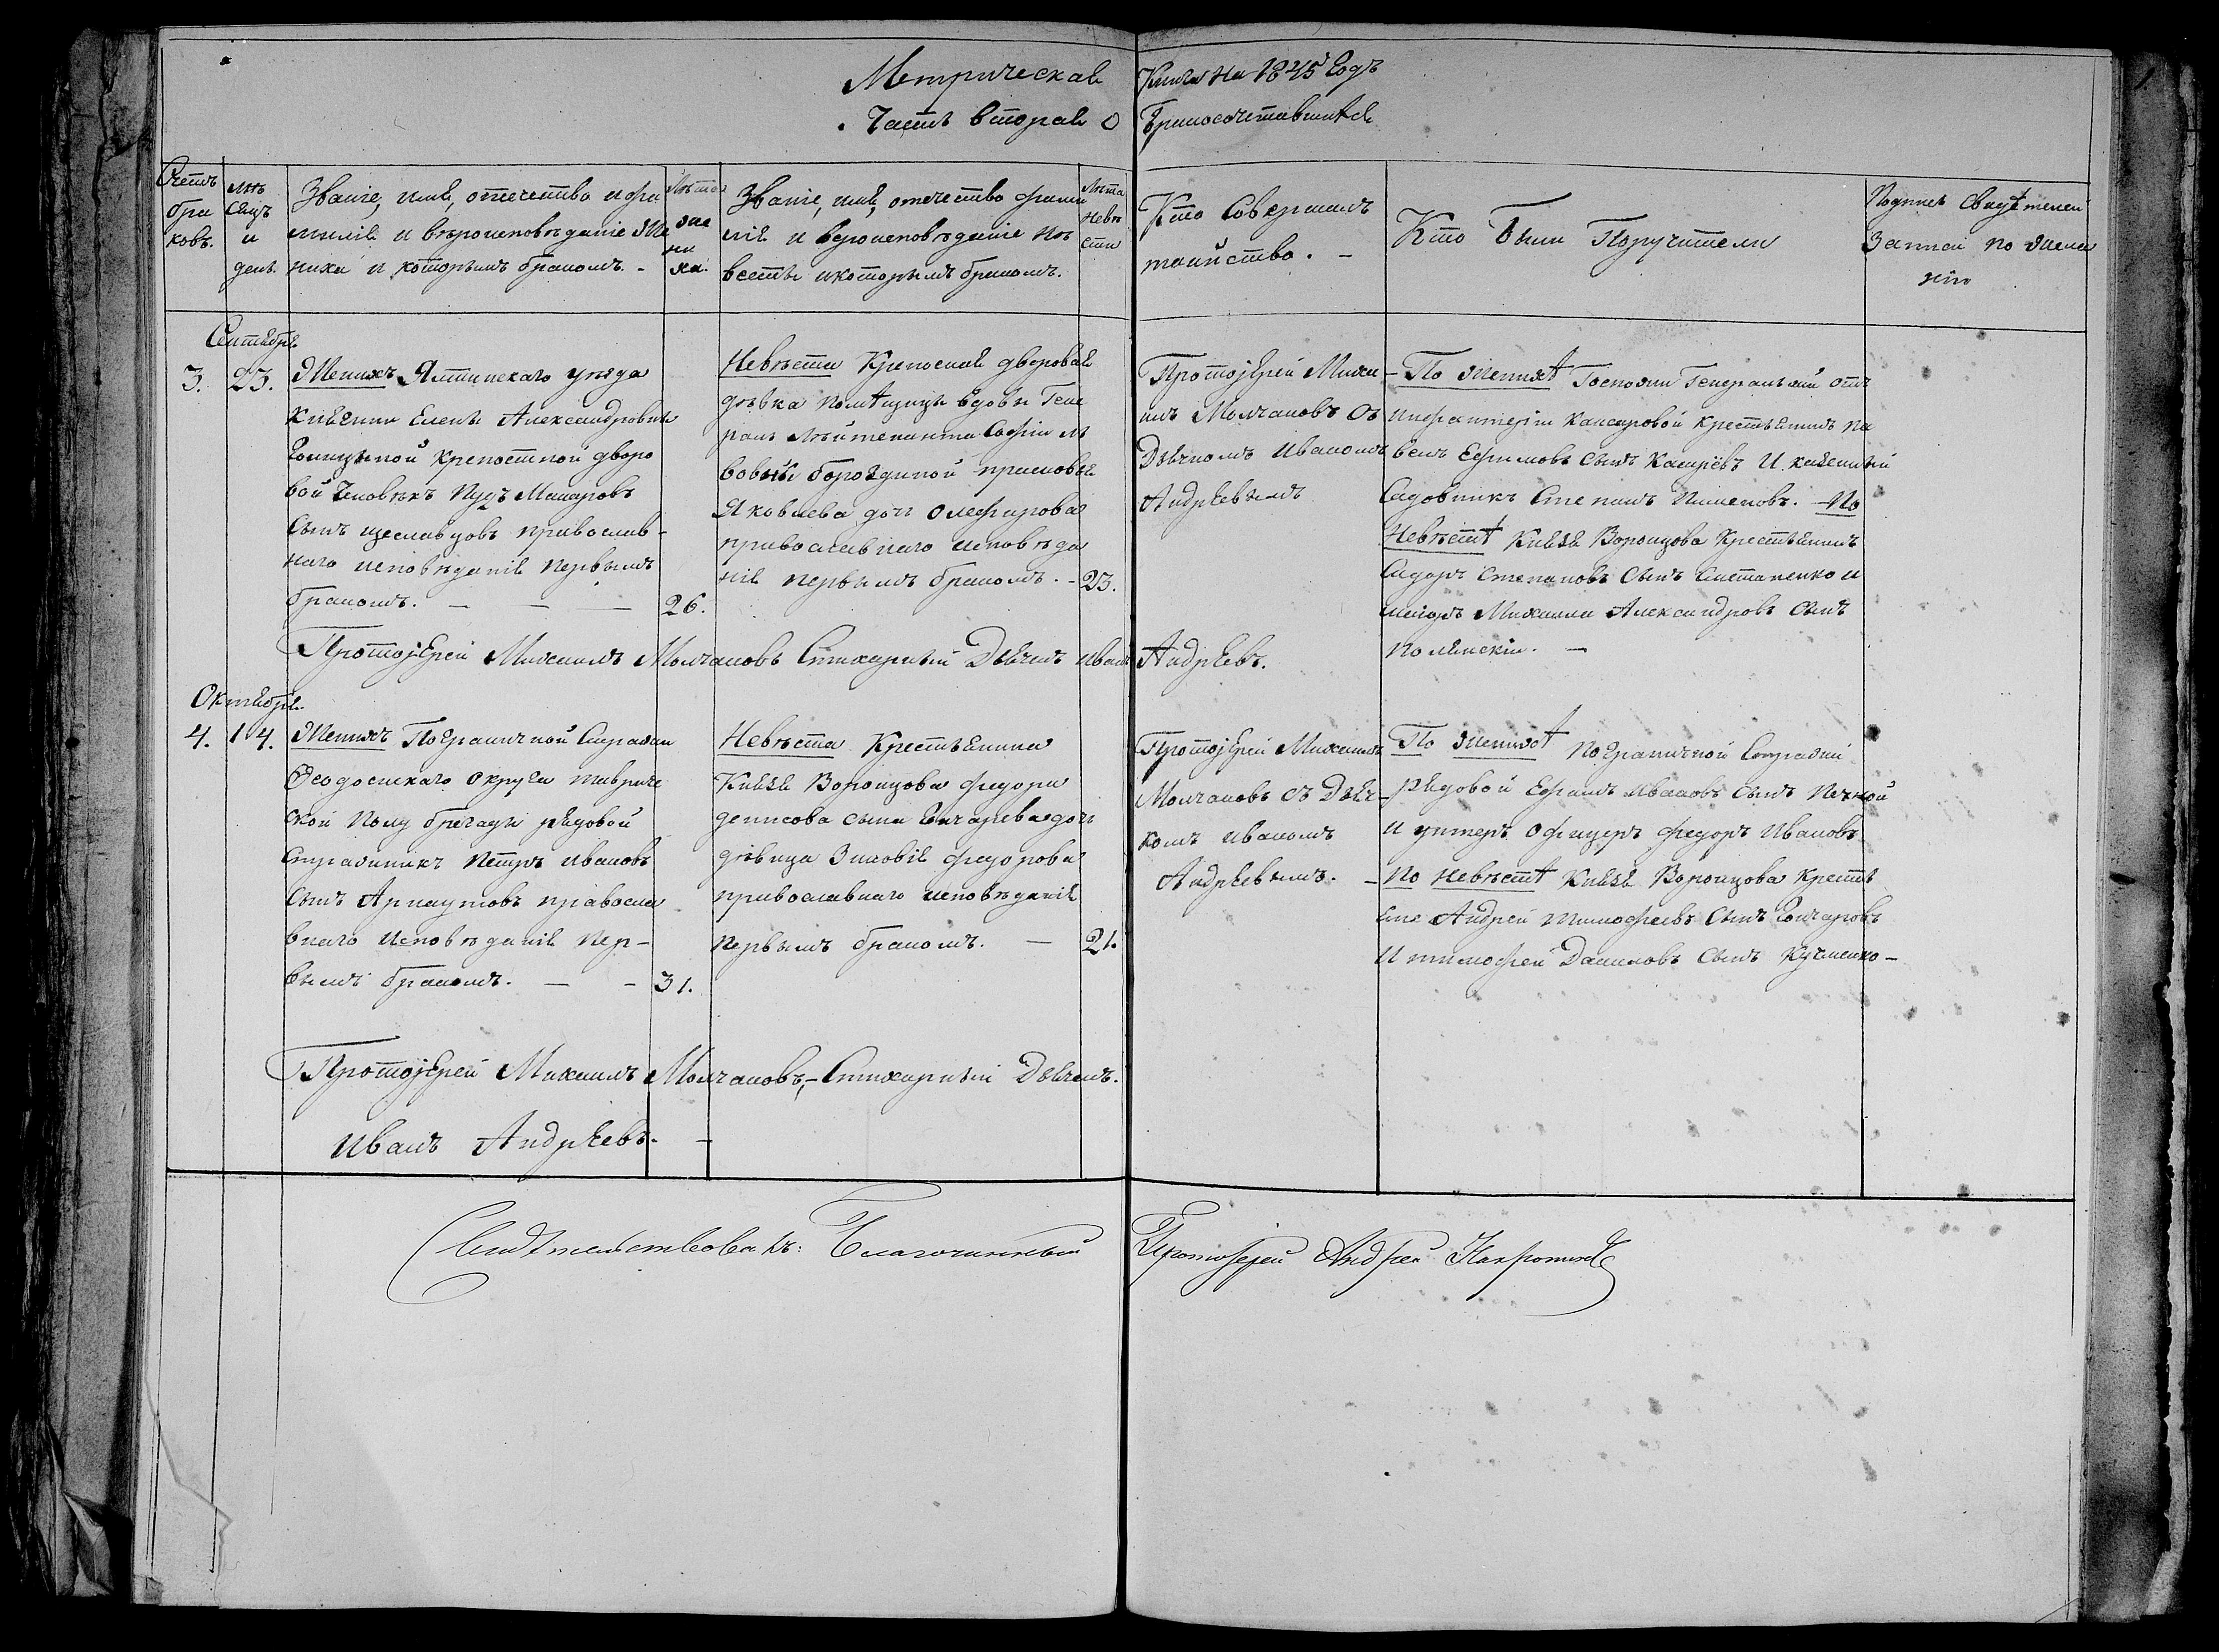 Метрическая Книга на 1845 Годъ
Часть вторая о Бракосочетавшихся
Счетъ
бра
ковъ.
Мѣ
сяцъ
и
день.
Званіе, имя, отечество и фа
милія и вѣроисповѣданіе Же
ниха и которымъ бракомъ. -
Лѣта
же
ни
ха.
Званіе, имя, отечество фами
лія и вероисповѣданіе не
весты и которымъ бракомъ.
Лѣта
Невѣ
сты
Кто Совершалъ
таинство. -
Кто Были Поручители
Подписъ Свидѣтелей
записи по жела
нію
Сентября
3. 23.
Женихъ Ялтинскаго уѣзда
Княгини Елены Александровны
Голицыной крепостной дворо
вой Человѣкъ Пудъ Макаровъ
Сынъ православ-
наго исповѣданія первымъ
бракомъ. - - - 26.
Невѣста Крепосная дворовая
дѣвка помѣщицы вдовы Гене
ралъ Лейтенанта Софіи Ль
вовны Бороздиной
Яковлева дочь Олефирова
православнаго исповѣда
нія первымъ бракомъ. - 23.
Протоіерей Миха-
илъ Молчановъ Съ
Дьячкомъ Иваномъ
Андрѣевымъ
По женихѣ Господжи Генеральши отъ
инфантеріи крестьянинъ Па
велъ Ефимовъ Сынъ И казенный
Садовникъ Степанъ Пименовъ. - По
Невѣстѣ Князя Воронцова Крестьянинъ
Сидоръ Степановъ Сынъ и
Михаила Александровъ Сынъ
Полянскій. -
Протоіерей Михаилъ Молчановъ Стихарный Дьячекъ Иванъ Андрѣевъ.
Октября
4. 14.
Женихъ Пограничной Стражи
Феодосискаго округа тавриче
ской Полу бригады рядовой
Стражникъ Петръ Ивановъ
Сынъ Арнаутовъ правосла
внаго Исповѣданія пер-
вымъ бракомъ. - - 31.
Невѣста Крестьянина
Князя Воронцова федора
денисова сына Гончарева дочь
дѣвица Зиновія федорова
православнаго исповѣданія
первымъ бракомъ. - 21.
Протоіерей Михаилъ
Молчановъ съ Дьяч-
комъ Иваномъ
Андрѣевымъ. -
По женихѣ пограничной Стражи
рядовой Ефимъ Ивановъ Сынъ
И унтеръ офицеръ федоръ Ивановъ
По невѣстѣ Князя Воронцова Кресть
яне Андрей тимофеевъ Сынъ Гончаровъ
И тимофей Даниловъ Сынъ Кучменко -
Протоіерей Михаилъ Молчановъ, - Стихарный Дьячекъ.
Иванъ Андрѣевъ. -
Свидѣтельствовалъ: Благочинный Протоіерей Андрей